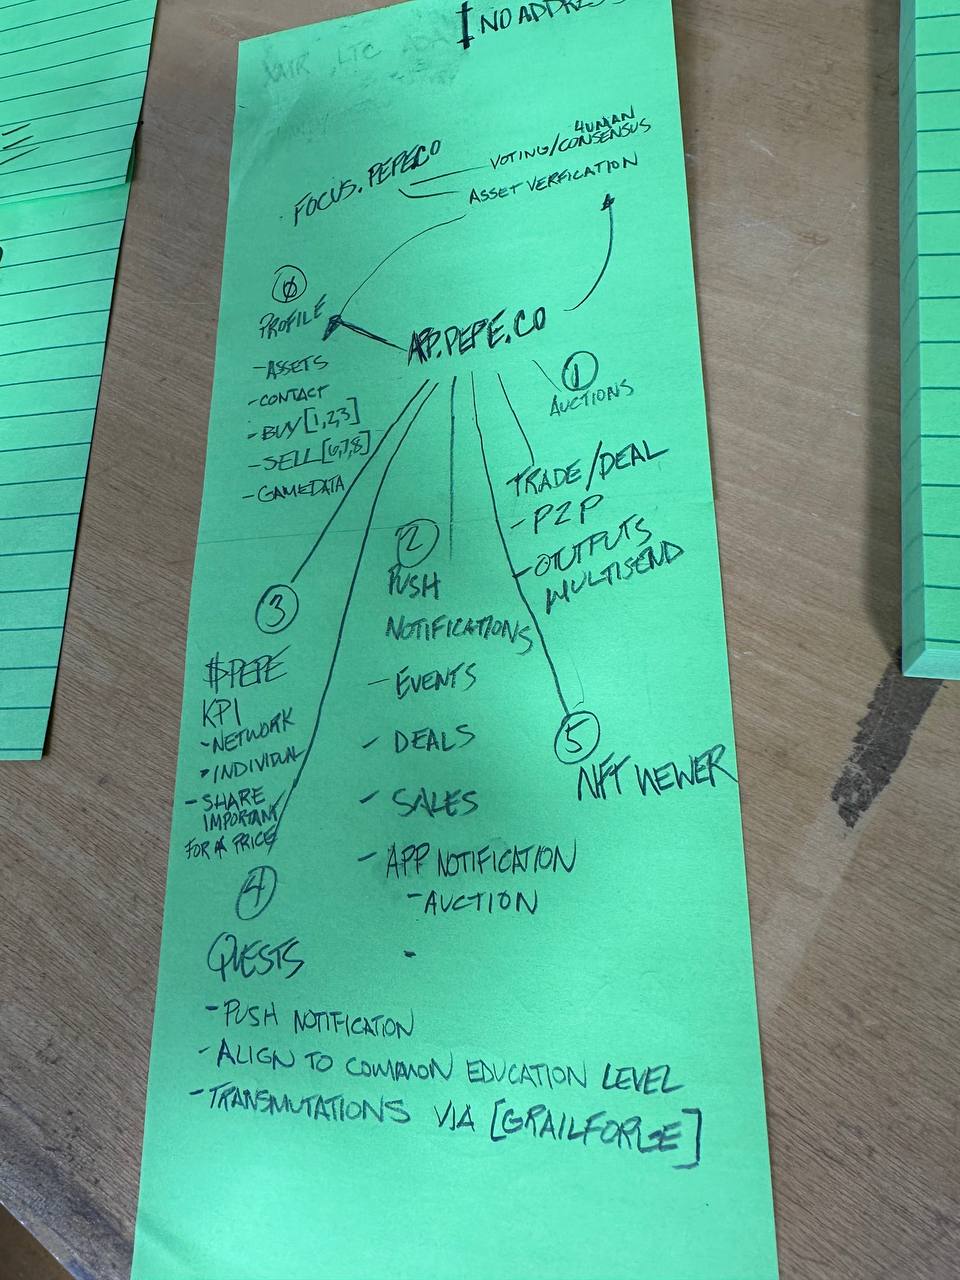 XMR LTC ADA
NO ADDRES
FOCUS.PEPE.CO
4UMAN
VOTING/CONSENSUS
ASSET VERFICATION
0
PROFILE
- ASSETS
- CONTACT
- BUY [1,2,3]
- SELL [6,7,8]
- GAMEDATA
APP.PEPE.CO
1
AUCTIONS
TRADE/DEAL
- P2P
- OUTPUTS
MULTISEND
2
PUSH
NOTIFICATIONS
- EVENTS
- DEALS
- SALES
- APP NOTIFICATION
- AUCTION
-
3
$PEPE
KPI
- NETWORK
- INDIVIDUAL
- SHARE
IMPORTANT
FOR PRICE
4
QUESTS
- PUSH NOTIFICATION
- ALIGN TO COMMON EDUCATION LEVEL
- TRANSMUTATIONS VIA [GRAILFORGE]
5
NFT VIEWER